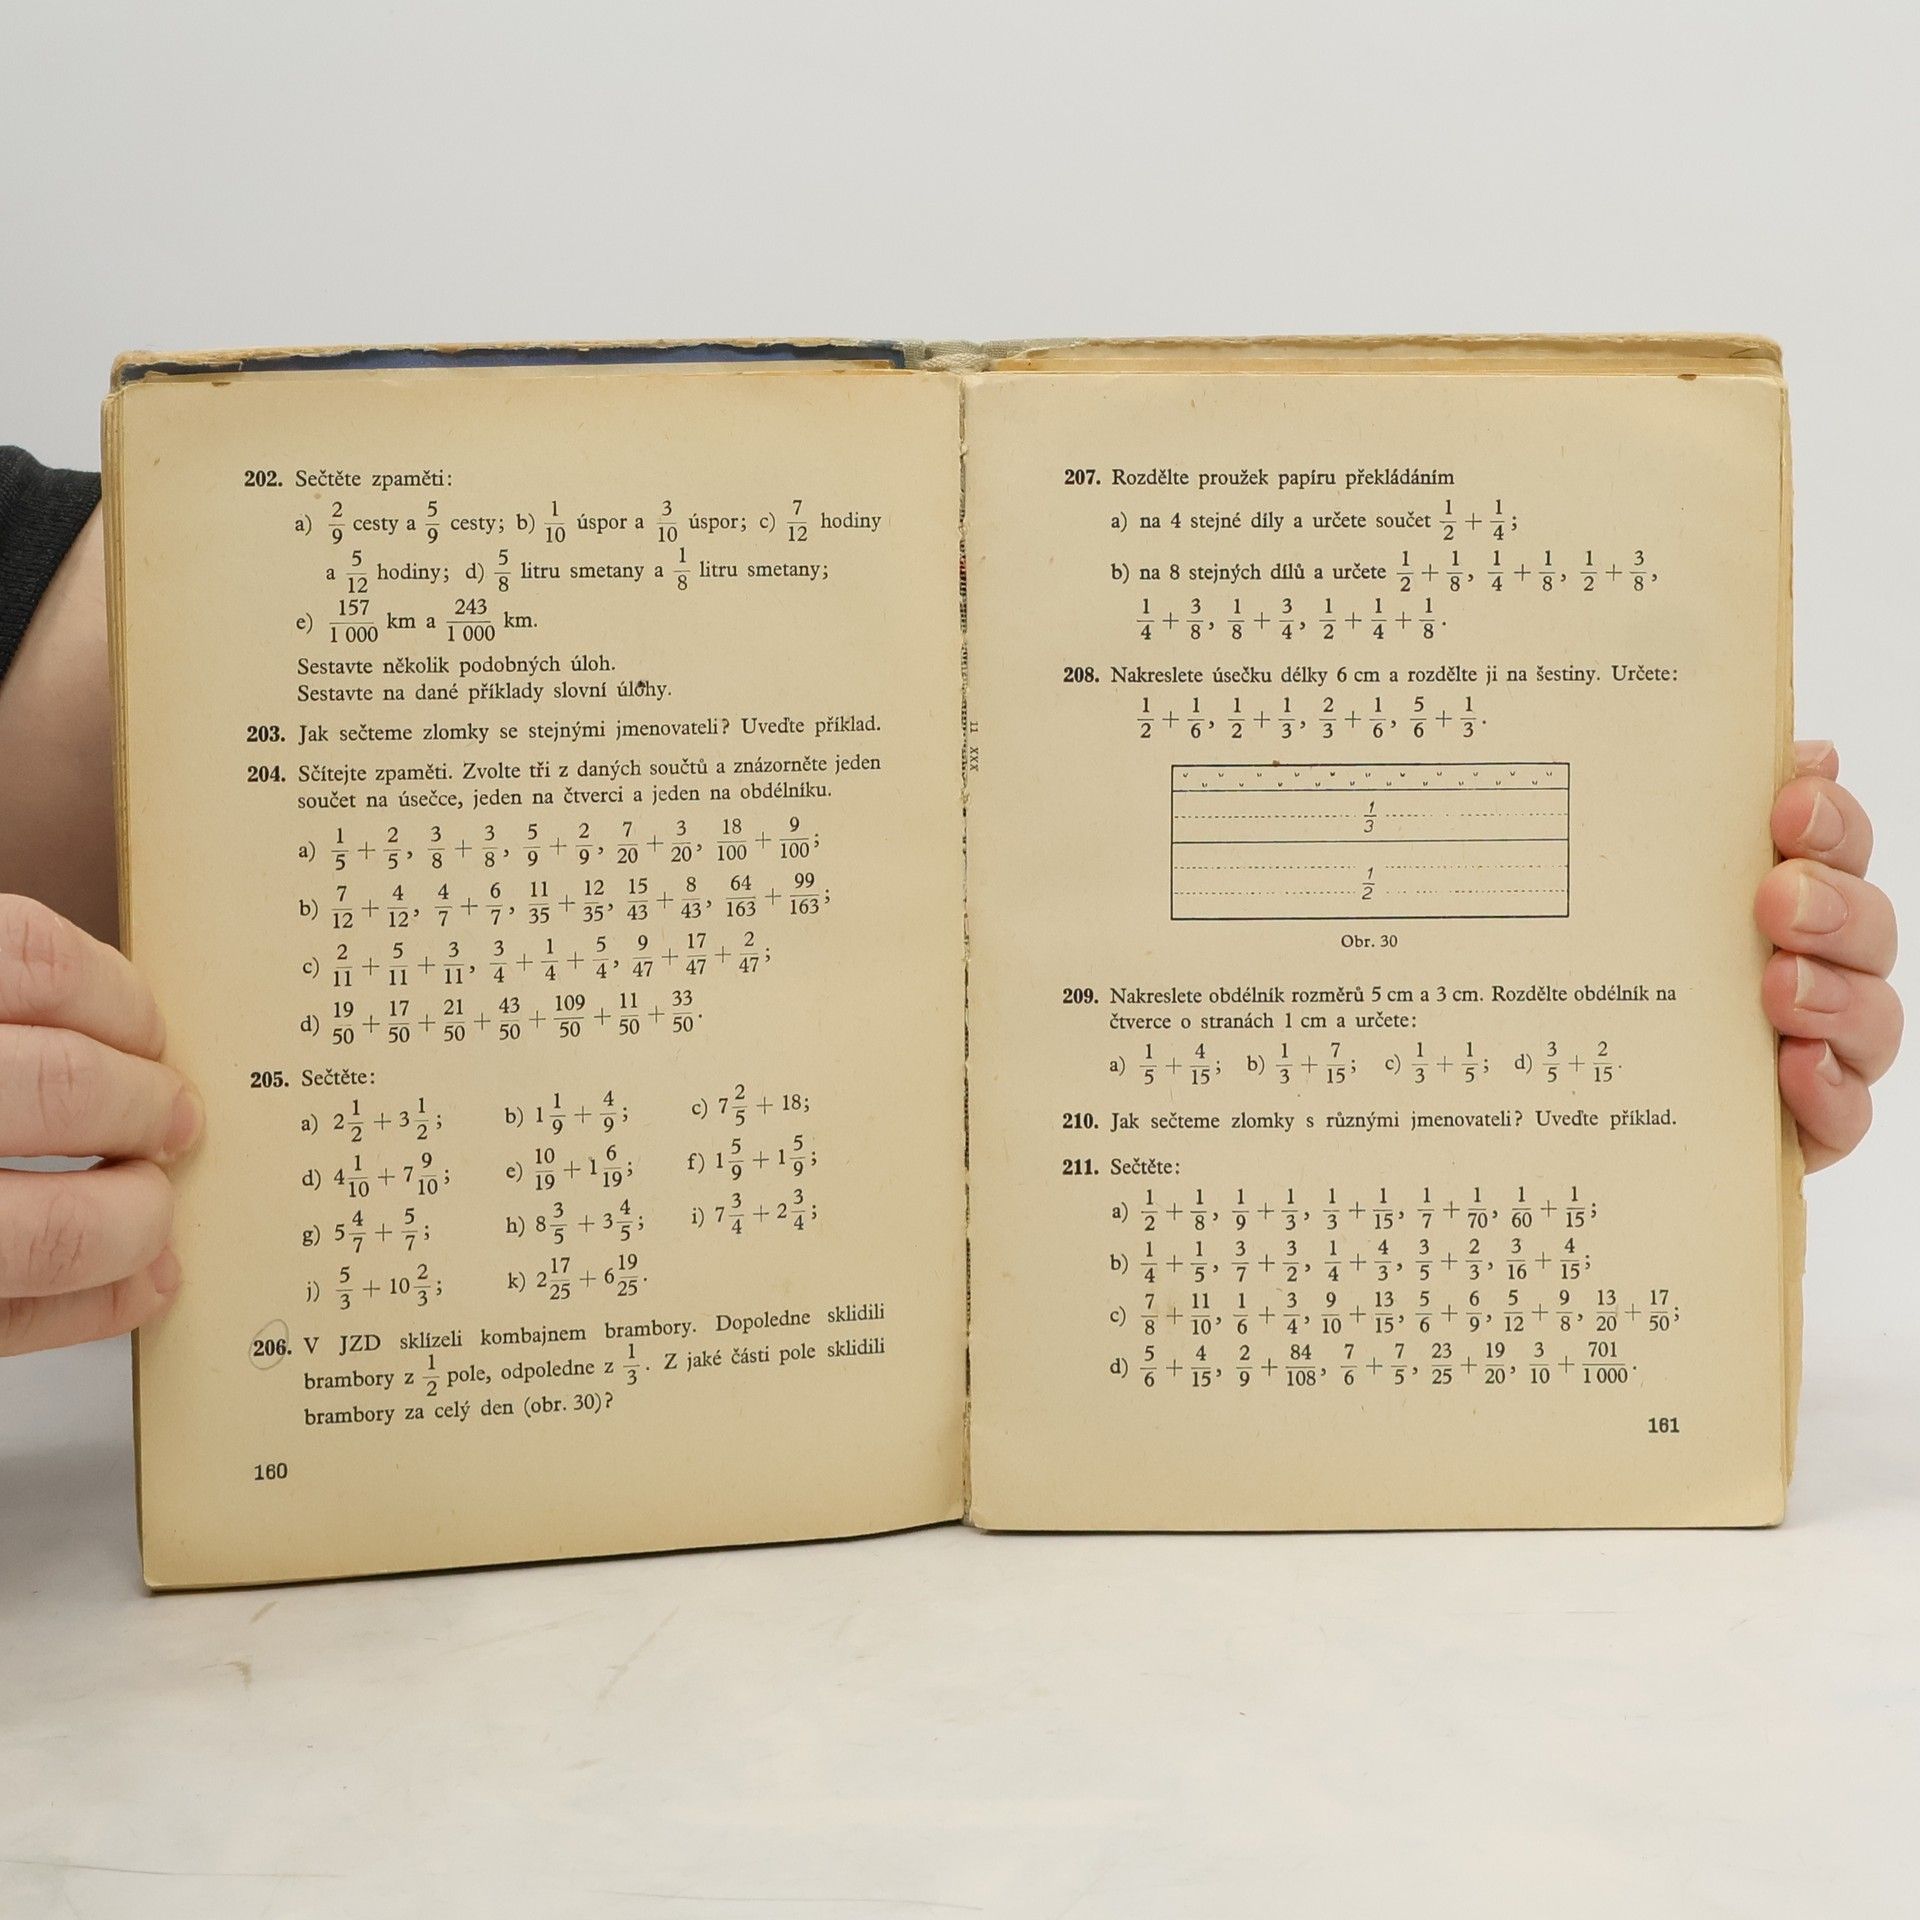 202. Sečtěte zpaměti:
a) 2/9 cesty a 5/9 cesty; b) 1/10 úspor a 3/10 úspor; c) 7/12 hodiny
a 5/12 hodiny; d) 5/8 litru smetany a 1/8 litru smetany;
e) 157/1 000 km a 243/1 000 km.
Sestavte několik podobných úloh.
Sestavte na dané příklady slovní úlohy.
203. Jak sečteme zlomky se stejnými jmenovateli? Uveďte příklad.
204. Sčítejte zpaměti. Zvolte tři z daných součtů a znázorněte jeden
součet na úsečce, jeden na čtverci a jeden na obdélníku.
a) 1/5 + 2/5, 3/8 + 3/8, 5/9 + 2/9, 7/20 + 3/20, 18/100 + 9/100;
b) 7/12 + 4/12, 4/7 + 6/7, 11/35 + 12/35, 15/43 + 8/43, 64/163 + 99/163;
c) 2/11 + 5/11 + 3/11, 3/4 + 1/4 + 5/4, 9/47 + 17/47 + 2/47;
d) 19/50 + 17/50 + 21/50 + 43/50 + 109/50 + 11/50 + 33/50.
205. Sečtěte:
a) 2 1/2 + 3 1/2; b) 1 1/9 + 4/9; c) 7 2/5 + 18;
d) 4 1/10 + 7 9/10; e) 10/19 + 1 6/19; f) 1 5/9 + 1 5/9;
g) 5 4/7 + 5/7; h) 8 3/5 + 3 4/5; i) 7 3/4 + 2 3/4;
j) 5/3 + 10 2/3; k) 2 17/25 + 6 19/25.
206. V JZD sklízeli kombajnem brambory. Dopoledne sklidili
brambory z 1/2 pole, odpoledne z 1/3. Z jaké části pole sklidili
brambory za celý den (obr. 30)?
160
11 XXX
207. Rozdělte proužek papíru překládáním
a) na 4 stejné díly a určete součet 1/2 + 1/4;
b) na 8 stejných dílů a určete 1/2 + 1/8, 1/4 + 1/8, 1/2 + 3/8,
1/4 + 3/8, 1/8 + 3/4, 1/2 + 1/4 + 1/8.
208. Nakreslete úsečku délky 6 cm a rozdělte ji na šestiny. Určete:
1/2 + 1/6, 1/2 + 1/3, 2/3 + 1/6, 5/6 + 1/3.
1/3
1/2
Obr. 30
209. Nakreslete obdélník rozměrů 5 cm a 3 cm. Rozdělte obdélník na
čtverce o stranách 1 cm a určete:
a) 1/5 + 4/15; b) 1/3 + 7/15; c) 1/3 + 1/5; d) 3/5 + 2/15.
210. Jak sečteme zlomky s různými jmenovateli? Uveďte příklad.
211. Sečtěte:
a) 1/2 + 1/8, 1/9 + 1/3, 1/3 + 1/15, 1/7 + 1/70, 1/60 + 1/15;
b) 1/4 + 1/5, 3/7 + 3/2, 1/4 + 4/3, 3/5 + 2/3, 3/16 + 4/15;
c) 7/8 + 11/10, 1/6 + 3/4, 9/10 + 13/15, 5/6 + 6/9, 5/12 + 9/8, 13/20 + 17/50;
d) 5/6 + 4/15, 2/9 + 84/108, 7/6 + 7/5, 23/25 + 19/20, 3/10 + 701/1 000.
161